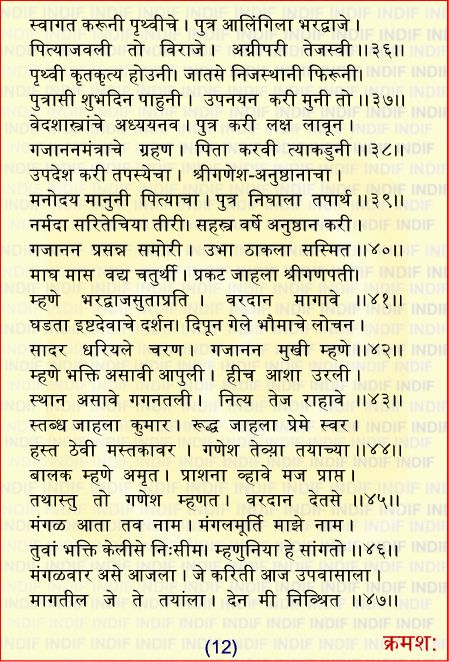 स्वागत करूनी पृथ्वीचे । पुत्र आलिंगिला भरद्वाजे ।
पित्याजवली तो विराजे । अग्रीपरी तेजस्वी ॥३६॥
पृथ्वी कृतकृत्य होउनी। जातसे निजस्थानी फिरूनी।
पुत्रासी शुभदिन पाहुनी । उपनयन करी मुनी तो ॥३७॥
वेदशास्त्रांचे अध्ययनव । पुत्र करी लक्ष लावून ।
गजाननमंत्राचे ग्रहण । पिता करवी त्याकडुनी ॥३८॥
उपदेश करी तपस्येचा । श्रीगणेश-अनुष्ठानाचा ।
मनोदय मानुनी पित्याचा । पुत्र निघाला तपार्थ ॥३९॥
नर्मदा सरितेचिया तीरी। सहस्त्र वर्षे अनुष्ठान करी ।
गजानन प्रसन्न समोरी । उभा ठाकला सस्मित ॥४०॥
माघ मास वद्य चतुर्थी । प्रकट जाहला श्रीगणपती।
म्हणे भरद्वाजसुताप्रति । वरदान मागावे ॥४१॥
घडता इष्टदेवाचे दर्शन। दिपून गेले भौमाचे लोचन ।
सादर धरियले चरण । गजानन मुखी म्हणे ॥४२॥
म्हणे भक्ति असावी आपुली । हीच आशा उरली ।
स्थान असावे गगनतली । नित्य तेज राहावे ॥४३॥
स्तब्ध जाहला कुमार । रूद्ध जाहला प्रेमे स्वर ।
हस्त ठेवी मस्तकावर । गणेश तेव्हा तयाच्या ॥४४॥
बालक म्हणे अमृत । प्राशना व्हावे मज प्राप्त ।
तथास्तु तो गणेश म्हणत । वरदान देतसे ॥४५॥
मंगळ आता तव नाम । मंगलमूर्ति माझे नाम ।
तुवां भक्ति केलीसे निःसीम। म्हणुनिया हे सांगतो ॥४६॥
मंगळवार असे आजला । जे करिती आज उपवासाला ।
मागतील जे ते तयाला। देन मी निश्चित ॥४७॥
(12)
क्रमश: